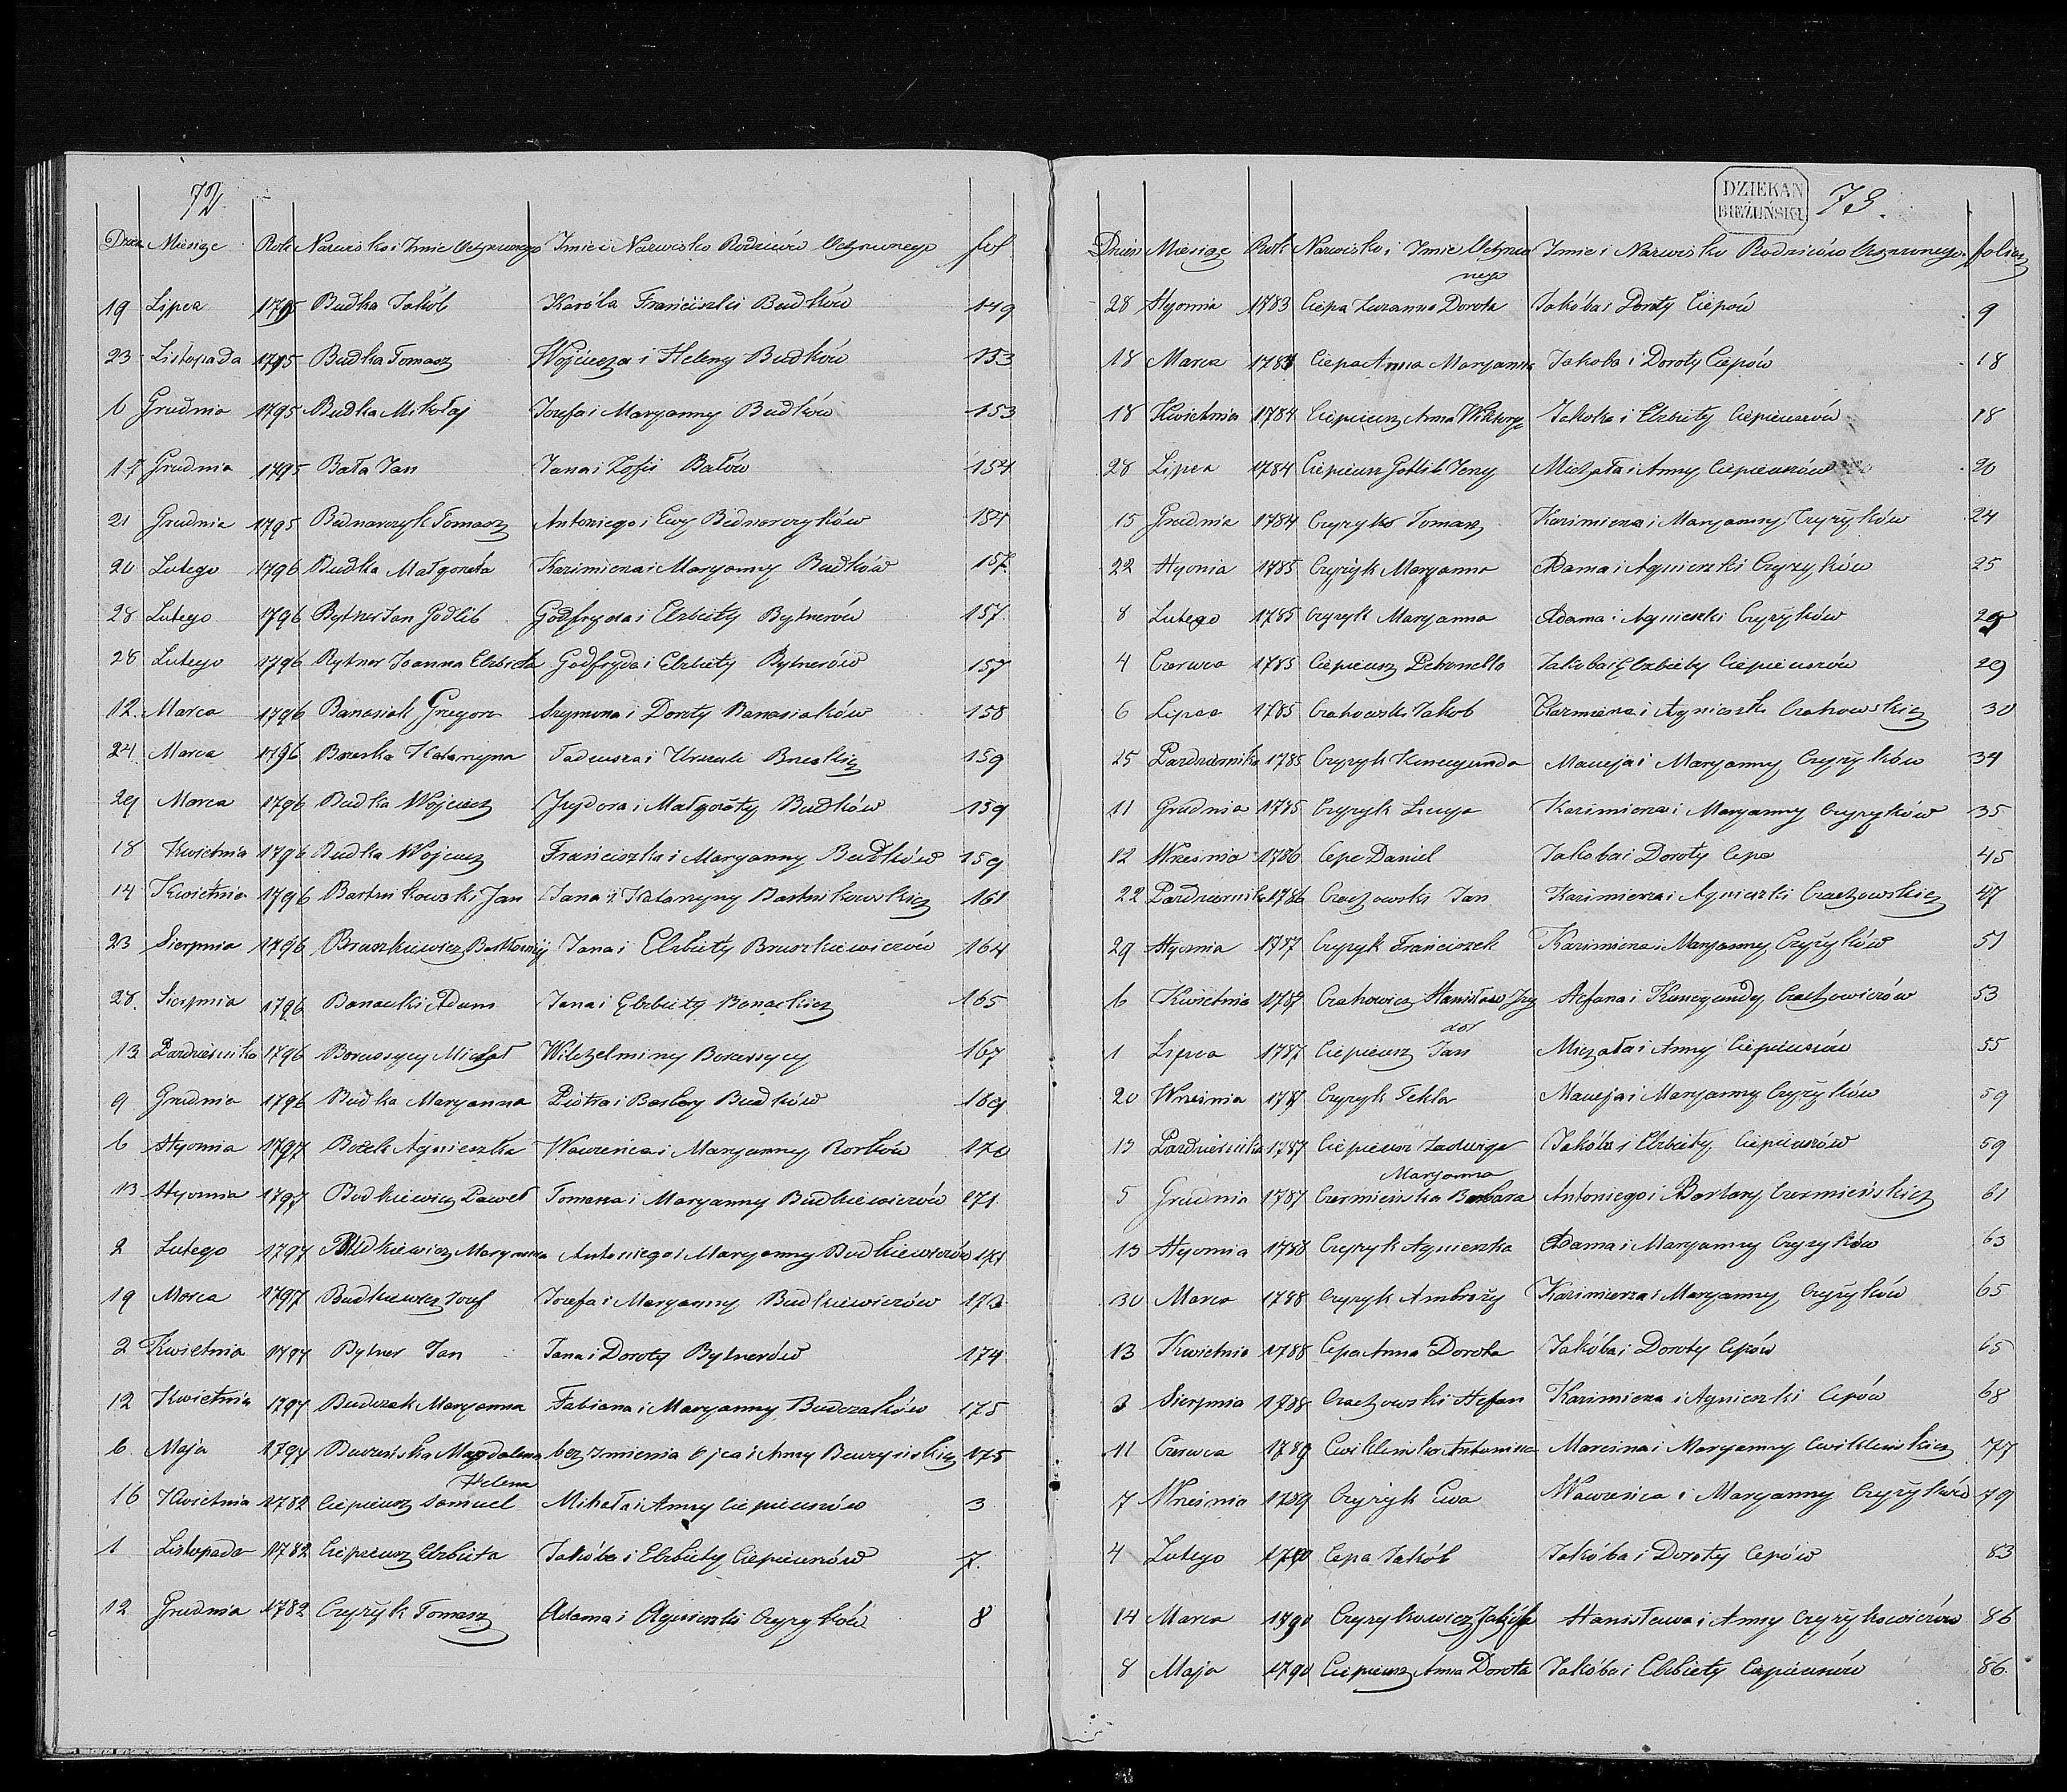 72
Dzień Miesiąc Rok Nazwisko i Imie Ochrzconego Imie i Nazwisko Rodziców Ochrzconego fol
19 Lipca 1795 Budka Jakób Karóla Franciszki Budków 149
23 Listopada 1795 Budka Tomasz Wojciecha i Heleny Budków 153
6 Grudnia 1795 Budka Mikołaj Jozefa i Maryanny Budków 153
Grudnia 1795 Bała Jan Jana i Zofii Bałów 154
21 Grudnia 1795 Bednarczyk Tomasz Antoniego i Ewy Bednarczyków 154
20 Lutego 1796 Budka Małgorzata Kazimierza i Maryanny Budków 157
28 Lutego 1796 Bytner Jan Godlib Godfryda i Elzbiety Bytnerów 157
28 Lutego 1796 Bytner Joanna Elzbieta Godfryda i Elzbiety Bytnerów 157
12. Marca 1796 Banasiak Grzegorz Szymona i Doroty Banasiaków 158
24. Marca 1796 Brzeska Katarzyna Tadeusza i Urszuli Brzeskich 159
29 Marca 1796 Budka Wojciech Izydora i Małgorzaty Budków 159
18 Kwietnia 1796 Budka Wojciech Franciszka i Maryanny Budków 159
14 Kwietnia 1796 Bartnikowski Jan Jana i Katarzyny Bartnikowskich 161
23 Sierpnia 1796 Bruszkiewicz Bartłomij Jana i Elzbiety Bruszkiewiczów 164
28. Sierpnia 1796 Banacki Adam Jana i Elzbiety Banackich 165
13 Pazdziernika 1796 Borussycy Michał Wilchelminy Borussycy 167
9 Grudnia 1796 Budka Maryanna Piotra i Barbary Budków 169
6 Stycznia 1797 Bořek Agnieszka Wawrzeńca i Maryanny Borków 170
13 Stycznia 1797 Budkiewicz Paweł Tomasza i Maryanny Budkiewiczów 171
2 Lutego 1797 Budkiewicz Maryanna Antoniego i Maryanny Budkiewiczów 171
19 Marca 1797 Budkiewicz Jozef Jozefa i Maryanny Budkiewiczów 173
2 Kwietnia 1797 Bytner Jan Jana i Doroty Bytnerów 174
12 Kwietnia 1797 Budczak Maryanna Fabiana i Maryanny Budczaków 175
6 Maja 1797 Magdalena bez imienia Ojca i Anny 175
Helena
16 Kwietnia 1782 Ciepieusz Samuel Michała i Anny Ciepieuszów 3
1 Listopada 1782 Ciepieusz Elzbieta Jakóba i Elzbiety Ciepieuszów 7.
12 Grudnia 1782 Czyżyk Tomasz Adama i Agnieszki Czyżyków 8
DZIEKAN
BIEŻUŃSKI
73.
Dzień Miesiąc Rok Nazwisko i Imie Ochrzco Imie i Nazwisko Rodziców Ochrzconego foliej
nego
28 Stycznia 1783 Ciepa Zuzanna Dorota Jakóba i Doroty Ciepów 9
18 Marca 1784 Ciepa Anna Maryanna Jakoba i Doroty Ciepów 18
18 Kwietnia 1784 Ciepieusz Anna Wiktorya Jakoba i Elzbiety Ciepieuszów 18
28 Lipca 1784 Ciepieusz Gotlib Jerzy Michała i Anny Ciepieuszów 20
15 Grudnia 1784 Czyzyk Tomasz Kazimierza i Maryanny Czyżyków 24
22 Stycznia 1785 Czyżyk Maryanna Adama i Agnieszki Czyżyków 25
8 Lutego 1785 Czyzyk Maryanna Adama i Agnieszki Czyżyków
4 Czerwca 1785 Ciepieusz Petronella Jakóba i Elzbiety Ciepieuszów 29
6 Lipca 1785 Czachowski Jakob Kazimierza i Agnieszki Czachowskich 30
25 Pazdziernika 1785 Czyzyk Kunegunda Macieja i Maryanny Czyżyków 34
11 Grudnia 1785 Czyzyk Łucya Kazimierza i Maryanny Czyzyków 35
12 Wrzesnia 1786 Cepe Daniel Jakoba i Doroty Cepa 45
22 Pazdziernika 1786 Czachowski Jan Kazimierza i Agnieszki Czachowskich 47
29 Stycznia 1787 Czyzyk Franciszek Kazimierza i Maryanny Czyżyków 51
6 Kwietnia 1787 Czachowicz Stanisław Izy Stefana i Kunegundy Czachowiczów 53
dor
1 Lipca 1787 Ciepieusz Jan Michała i Anny Ciepieuszów 55
20 Wrzesnia 1787 Czyzyk Tekla Macieja i Maryanny Czyżyków 59
13 Pazdziernika 1787 Ciepieusz Jadwiga Jakóba i Elzbiety Ciepieuszów 59
Maryanna
5 Grudnia 1787 Czermieńska Barbara Antoniego i Barbary Czermieńskich 61
13 Stycznia 1788 Czyzyk Agnieszka Adama i Maryanny Czyzyków 63
30 Marca 1788 Czyzyk Ambroży Kazimierza i Maryanny Czyżyków 65
13 Kwietnia 1788 Cepa Anna Dorota Jakóba i Doroty Cepów 65
3 Sierpnia 1788 Czachowski Stefan Kazimierza i Agnieszki Cepów 68
11 Czerwca 1789 Cwiklinska Antonina Marcina i Maryanny Cwiklinskich 77
7 Wrzesnia 1789 Czyzyk Ewa Wawrzeńca i Maryanny Czyżyków 79
4 Lutego 1790 Cepa Jakób Jakóba i Doroty Cepów 83
14 Marca 1790 Czyzykowicz Stanisława i Anny Czyżykowiczów 86
8 Maja 1790 Ciepieusz Anna Dorota Jakóba i Elzbiety Ciepieuszów 86.